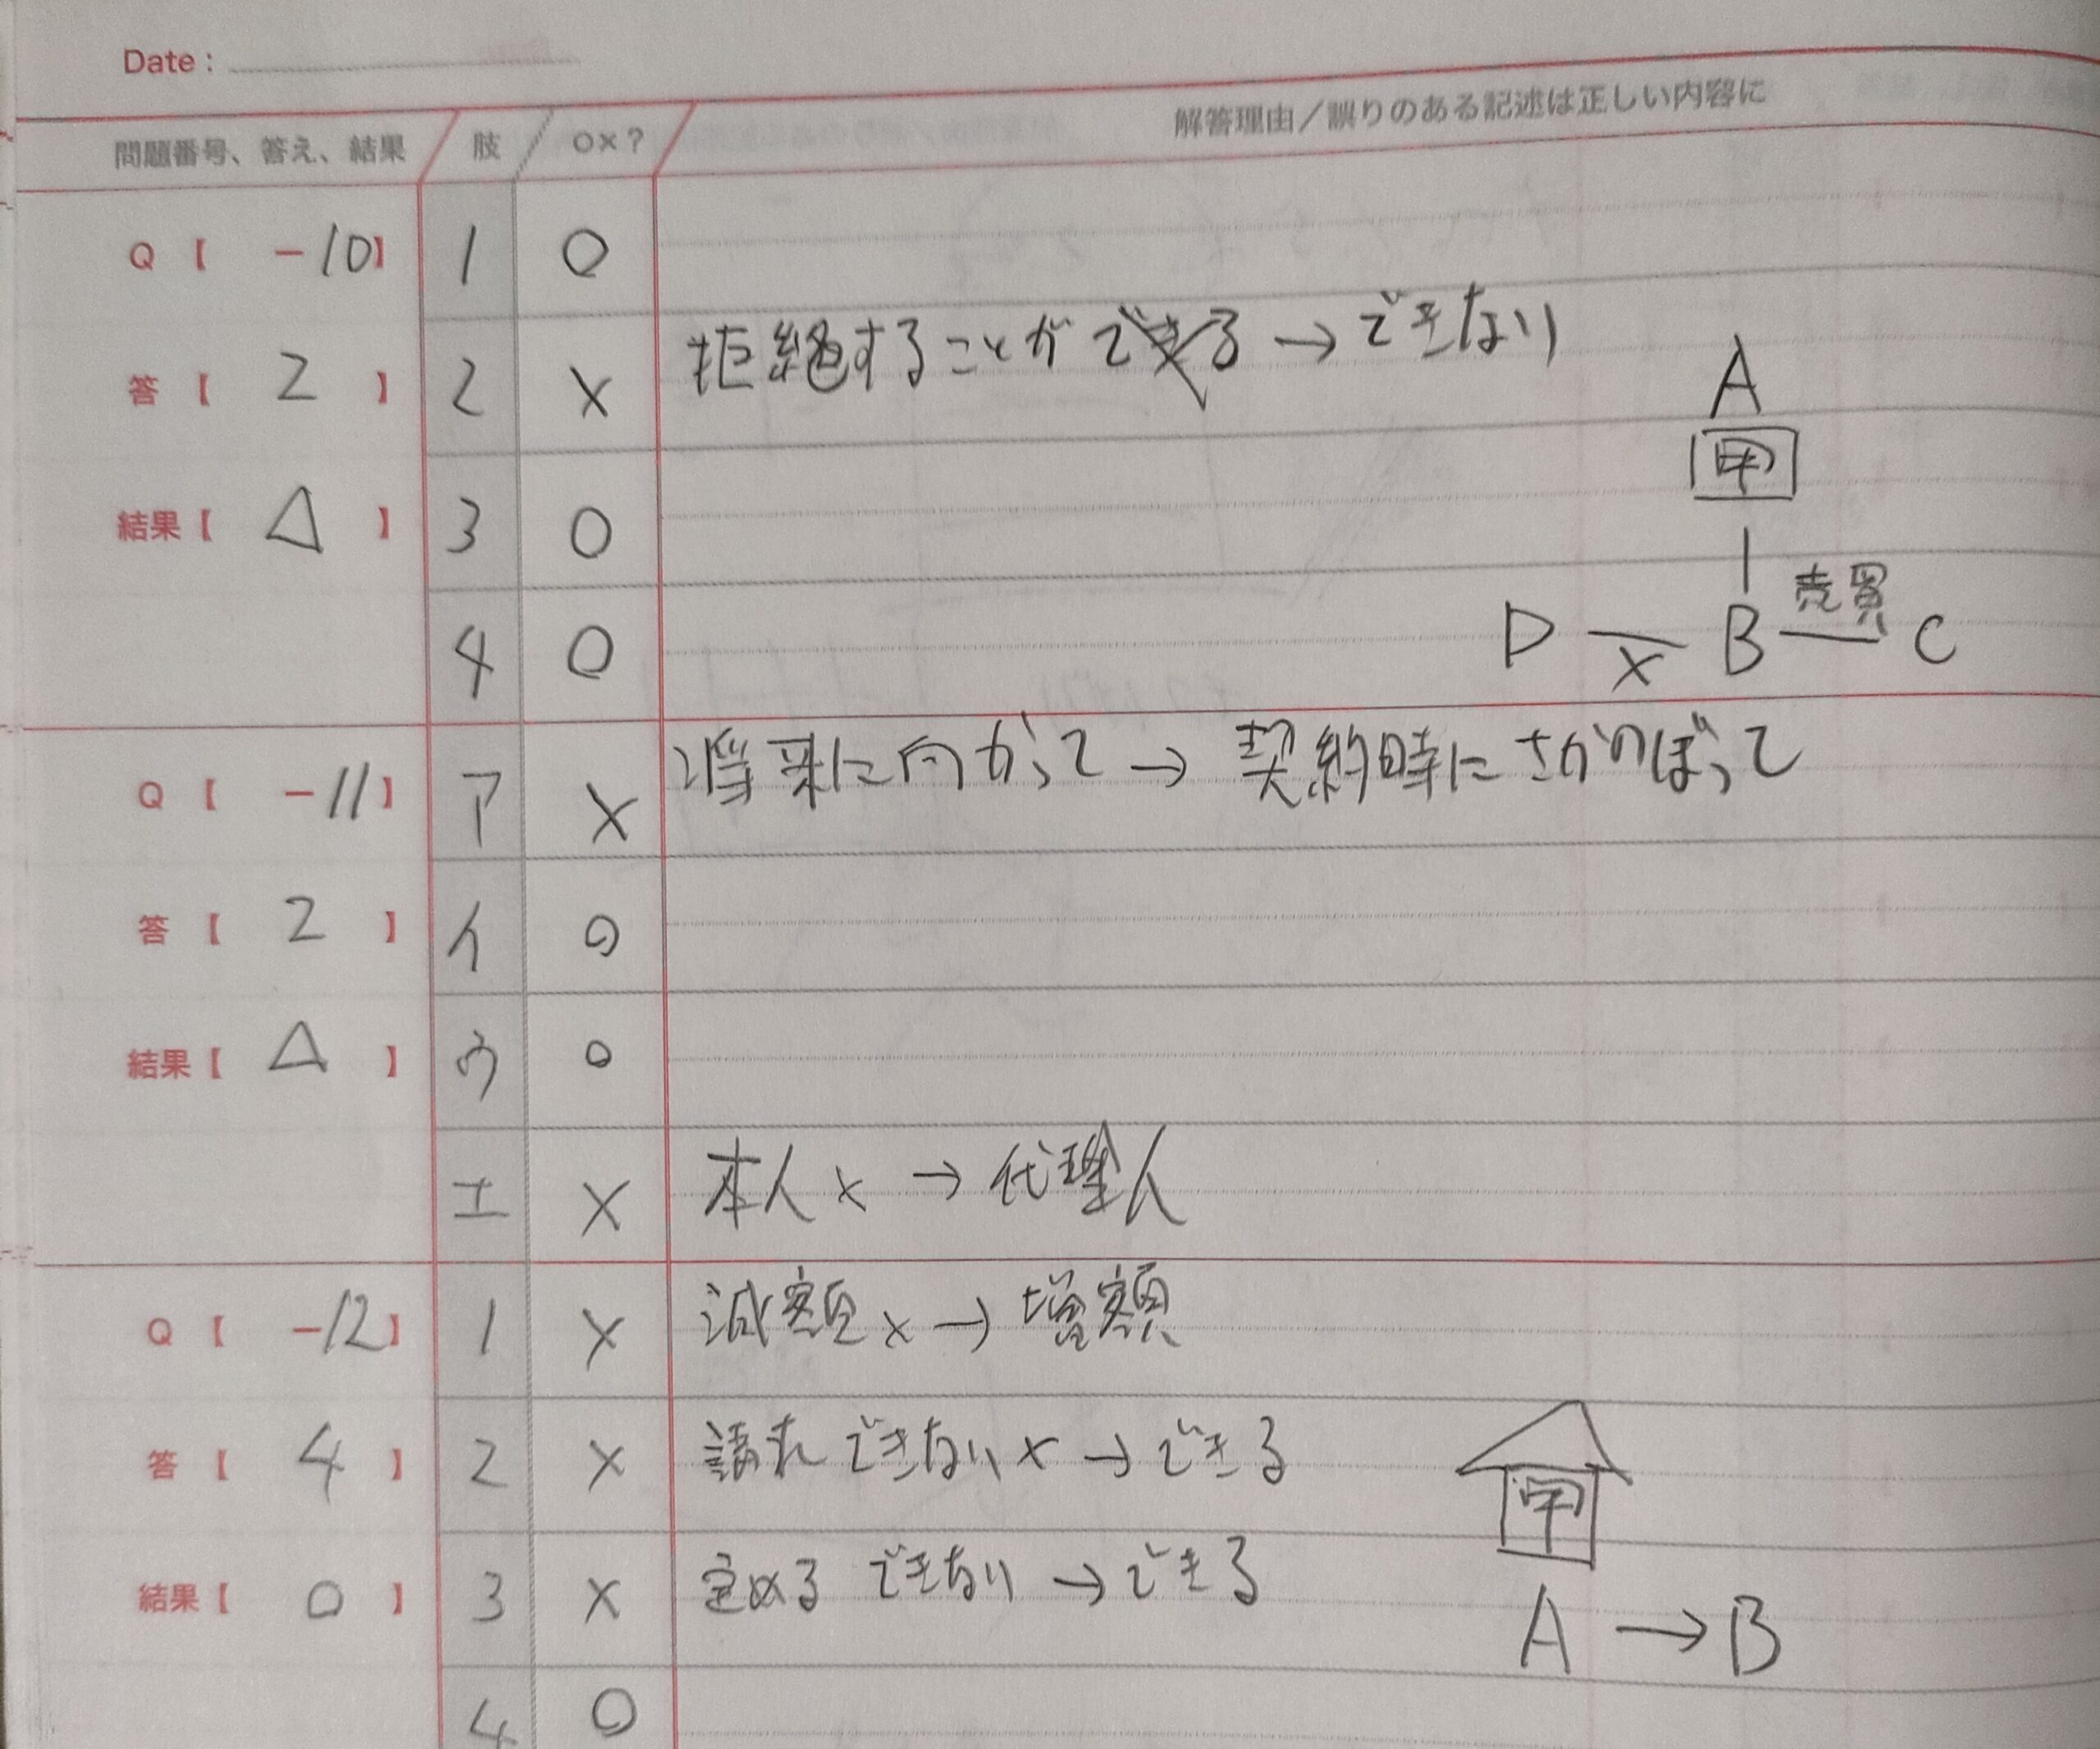 Date :
問題番号、答え、結果 肢 ○×? 解答理由/誤りのある記述は正しい内容に
Q【 -10】 1 ○
答【 2 】 2 × 拒絶することができる → できない
結果【 △ 】 3 ○
4 ○
A
甲
売買
D × B C
Q【 -11】 ア × 将来に向かって → 契約時にさかのぼって
答【 2 】 イ ○
結果【 △ 】 ウ ○
エ × 本人 × → 代理人
Q【 -12】 1 × 減額 × → 増額
答【 4 】 2 × 請求 できない × → できる
結果【 ○ 】 3 × 定める できない → できる
4 ○
甲
A → B